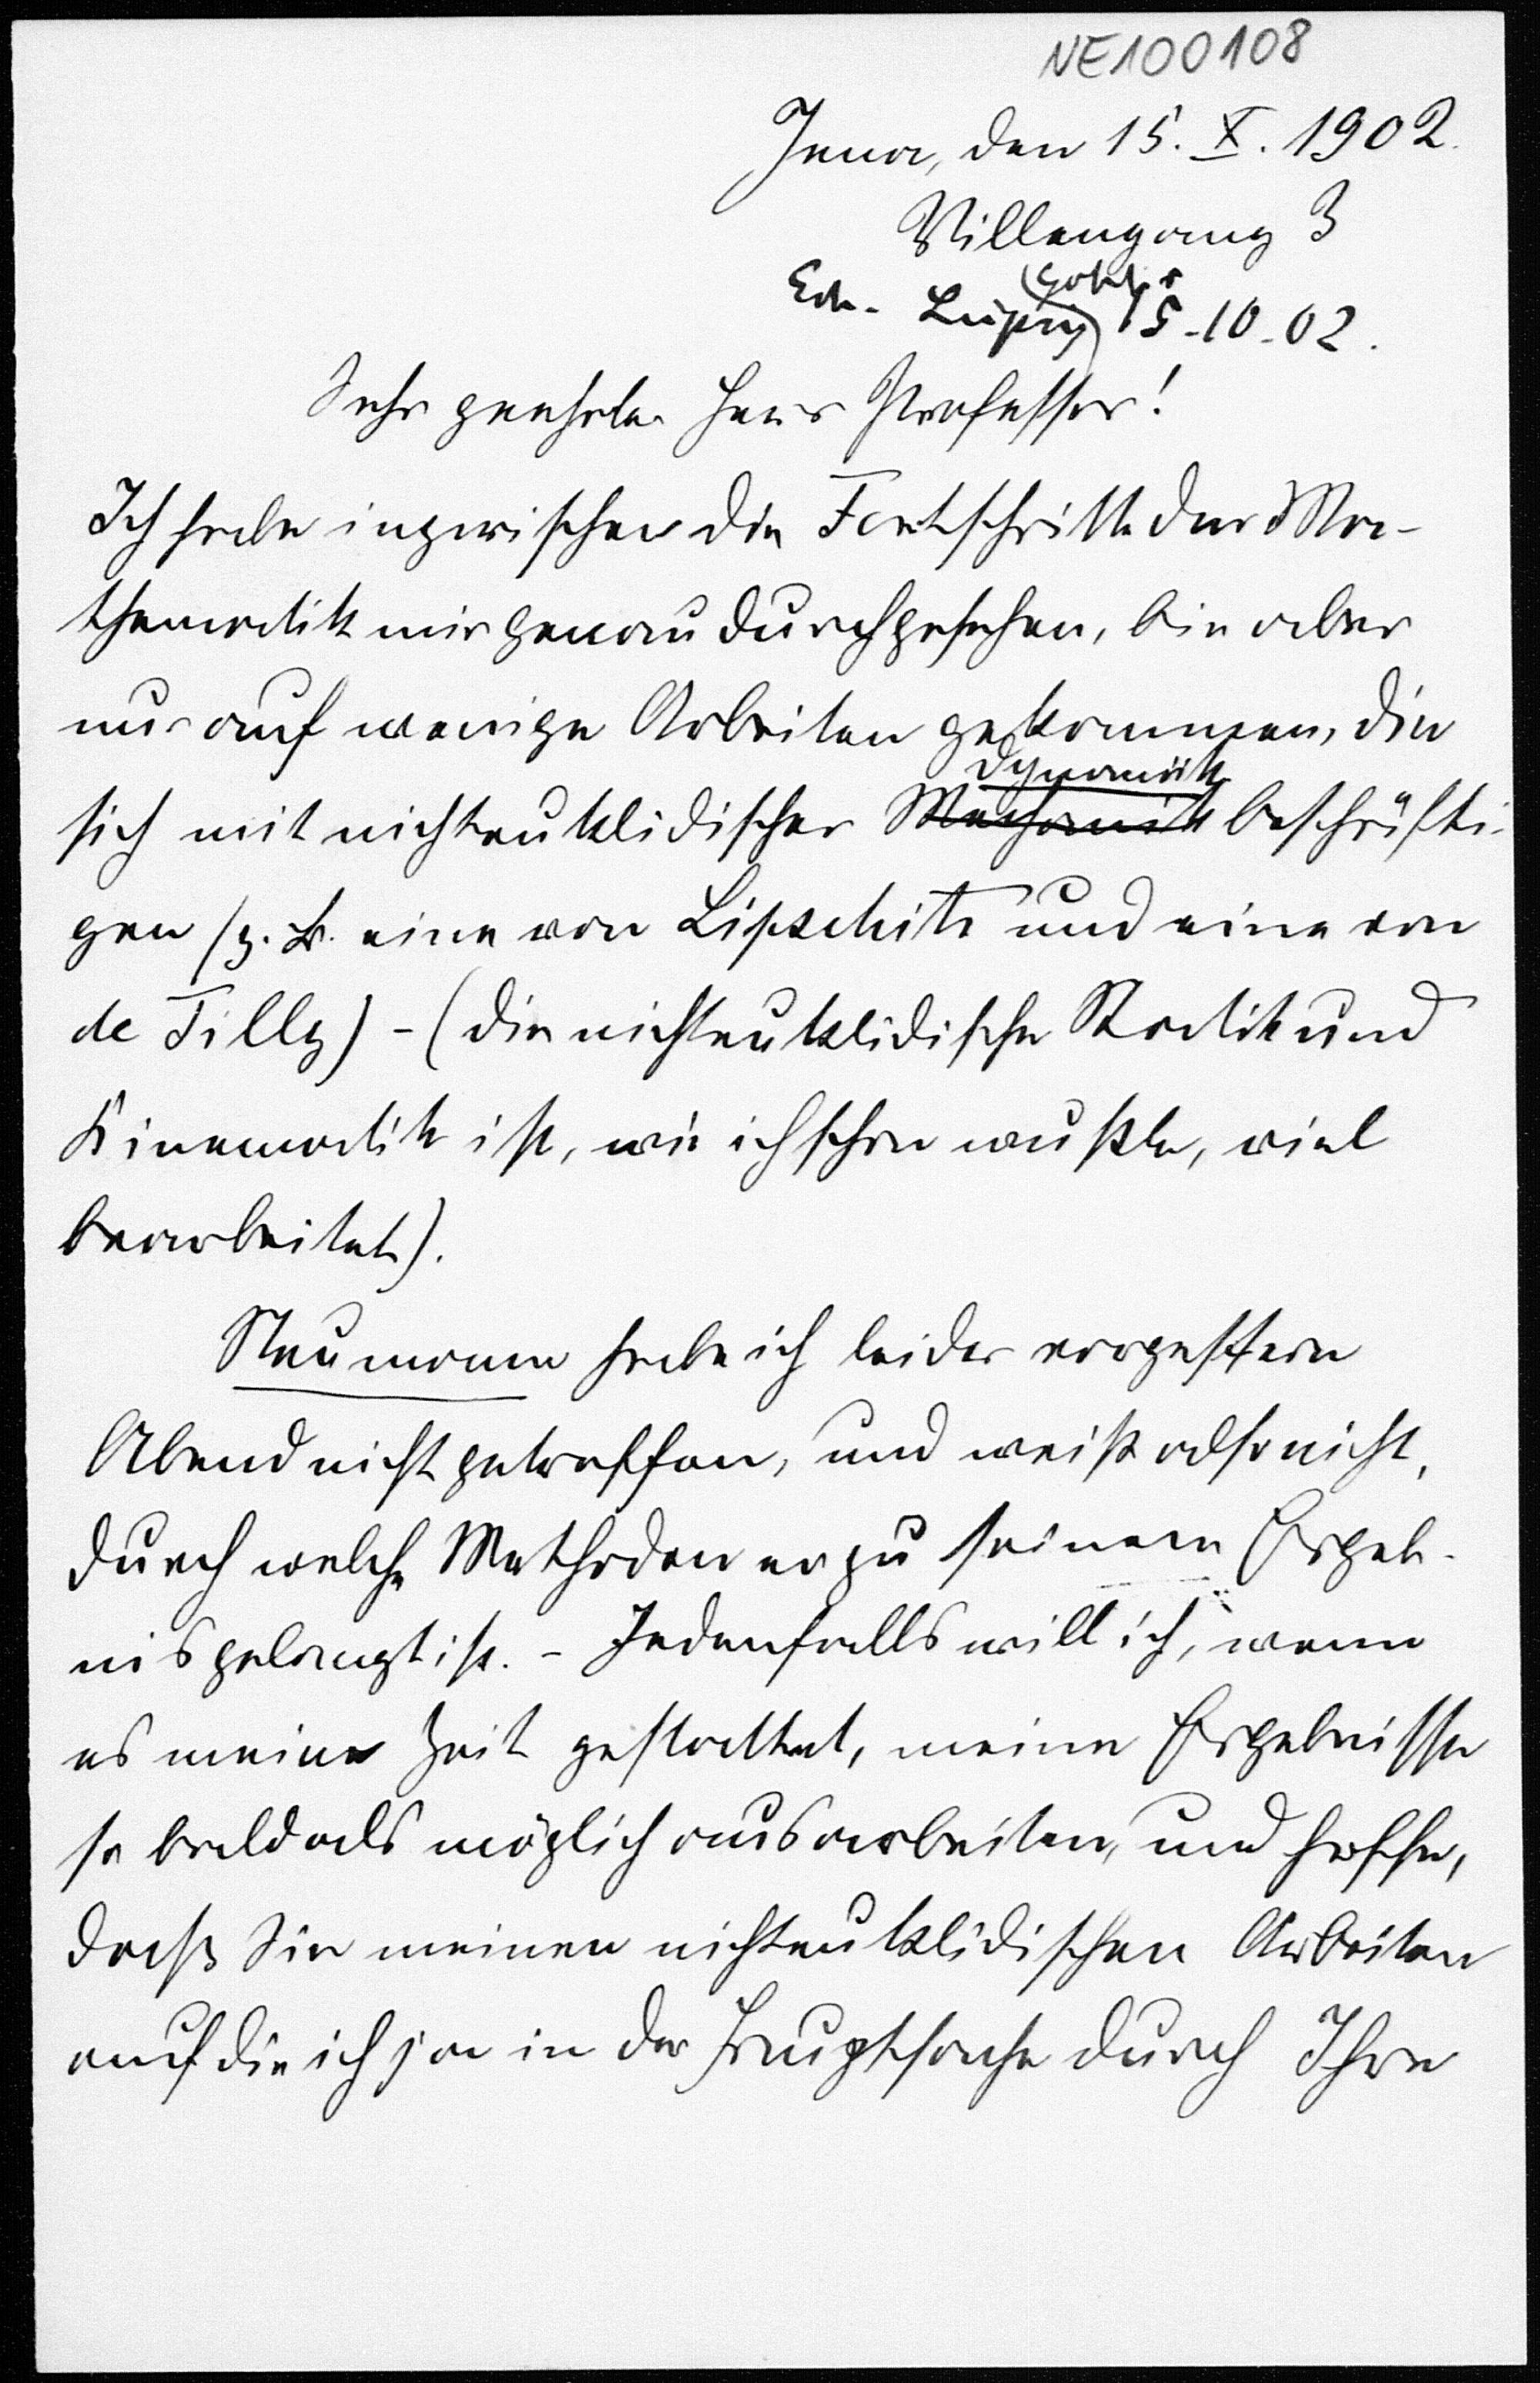 NE100108
Jena, den 15. X. 1902.
Villengang 3
(Gohlis
Leipzig) 15-10-02.
Sehr geehrter Herr Professor!
Ich habe inzwischen die Fortschritte der Ma-
thematik mir genau durchgesehen, bin aber
nur auf wenige Arbeiten gekommen, die
Dynamik
sich mit nichteuklidischer Mechanik beschäfti-
gen (z. B. eine von Lipschitz und eine von
de Tilly) - (die nichteuklidische Statik und
Kinematik ist, wie ich schon wußte, viel
bearbeitet).
Neumann habe ich leider vorgestern
Abend nicht getroffen, und weiß also nicht,
durch welche Methoden er zu seinem Ergeb-
nis gelangt ist. - Jedenfalls will ich, wenn
es meine Zeit gestattet, meine Ergebnisse
so bald als möglich ausarbeiten, und hoffe,
daß Sie meinen nichteuklidischen Arbeiten
auf die ich ja in der Hauptsache durch Ihre